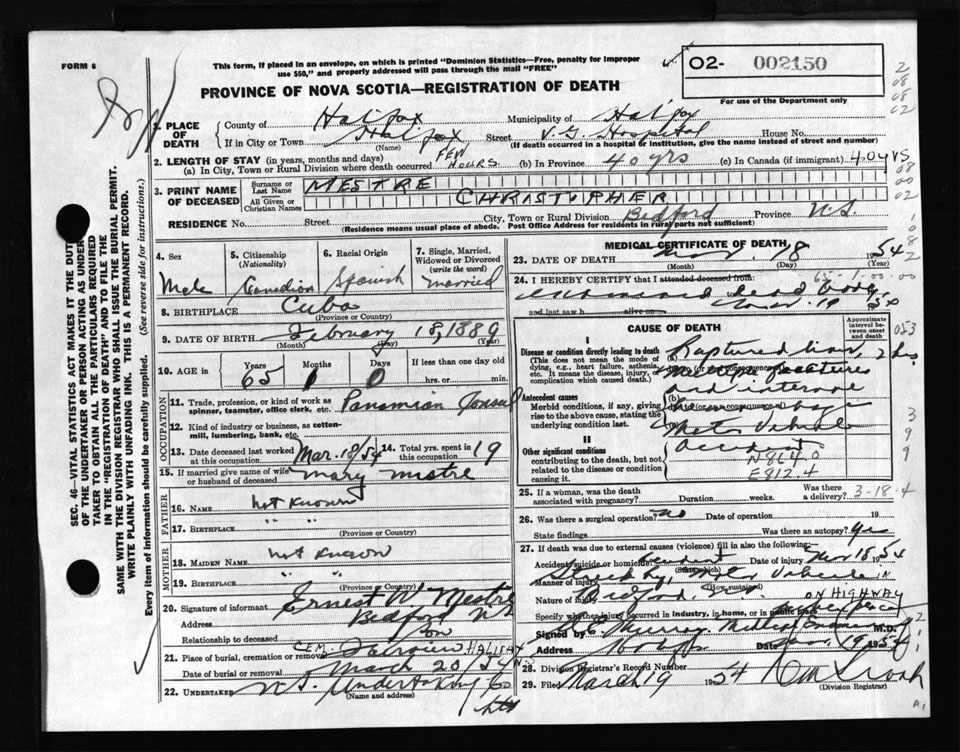 FORM 6
This form, if placed in an envelope, on which is printed "Dominion Statistics—Free, penalty for improper
use $50," and properly addressed will pass through the mail "FREE"
02- 002150
For use of the Department only
PROVINCE OF NOVA SCOTIA—REGISTRATION OF DEATH
1. PLACE OF DEATH
County of Halifax Municipality of Halifax
If in City or Town Halifax Street V.G. Hospital House No.
(Name) (If death occurred in a hospital or institution, give the name instead of street and number)
2. LENGTH OF STAY (in years, months and days)
(a) In City, Town or Rural Division where death occurred FEW HOURS (b) In Province 40 yrs (c) In Canada (if immigrant) 40 yrs
3. PRINT NAME OF DECEASED
Surname or Last Name MESTRE
All Given or Christian Names CHRISTOPHER
RESIDENCE No. Street City, Town or Rural Division Bedford Province N.S.
(Residence means usual place of abode. Post Office Address for residents in rural parts not sufficient)
4. Sex
Male
5. Citizenship (Nationality)
Canadian
6. Racial Origin
Spanish
7. Single, Married, Widowed or Divorced (write the word)
married
8. BIRTHPLACE Cuba
(Province or Country)
9. DATE OF BIRTH February 18, 1889
(Month) (Day) (Year)
10. AGE in Years Months Days If less than one day old
65 1 0 hrs. or min.
OCCUPATION
11. Trade, profession, or kind of work as spinner, teamster, office clerk, etc. Panamian Consul
12. Kind of industry or business, as cotton-mill, lumbering, bank, etc.
13. Date deceased last worked at this occupation Mar. 18/54
14. Total yrs. spent in this occupation 19
15. If married give name of wife or husband of deceased Mary Mestre
FATHER
16. NAME not known
17. BIRTHPLACE " "
(Province or Country)
MOTHER
18. MAIDEN NAME not known
19. BIRTHPLACE " "
(Province or Country)
20. Signature of informant Ernest W Mestre
Address Bedford NS
Relationship to deceased son
21. Place of burial, cremation or removal CEM. Fairview HALIFAX N.S.
Date of burial or removal March 20/54
22. UNDERTAKER N.S. Undertaking Co
(Name and address) Ltd
MEDICAL CERTIFICATE OF DEATH
23. DATE OF DEATH Mar. 18 1954
(Month) (Day)
24. I HEREBY CERTIFY that I attended deceased from:
65-1-00-00
examined dead body
and last saw h alive on Mar. 19 54
CAUSE OF DEATH
Approximate interval between onset and death
I
Disease or condition directly leading to death (a) Ruptured liver, 2 hrs
(This does not mean the mode of dying, e.g., heart failure, asthenia, etc. It means the disease, injury, or complication which caused death.)
Multiple fractures
and internal
Antecedent causes
Morbid conditions, if any, giving rise to the above cause, stating the underlying condition last.
(b)
Motor Vehicle
II
Other significant conditions
contributing to the death, but not related to the disease or condition causing it.
accident
N864.0
E812.4
25. If a woman, was the death associated with pregnancy? Duration weeks. Was there a delivery? 3-18-4
26. Was there a surgical operation? no Date of operation 19
State findings Was there an autopsy? Yes
27. If death was due to external causes (violence) fill in also the following:
Accident, suicide or homicide? Accident Date of injury Mar 18 1954
(State which)
Manner of injury Struck by Motor Vehicle IN
Nature of injury Bedford, ON HIGHWAY
Specify whether injury occurred in industry, in home, or in public place
Signed by Murray Medical Examiner M.D.
Address Halifax Date Mar. 19 1954
28. Division Registrar's Record Number
29. Filed March 19 1954
(Division Registrar)
SEC. 46—VITAL STATISTICS ACT MAKES IT THE DUTY
OF THE UNDERTAKER OR PERSON ACTING AS UNDER-
TAKER TO OBTAIN ALL THE PARTICULARS REQUIRED
IN THE "REGISTRATION OF DEATH" AND TO FILE THE
SAME WITH THE DIVISION REGISTRAR WHO SHALL ISSUE THE BURIAL PERMIT.
WRITE PLAINLY WITH UNFADING INK. THIS IS A PERMANENT RECORD.
Every item of information should be carefully supplied. (See reverse side for instructions.)